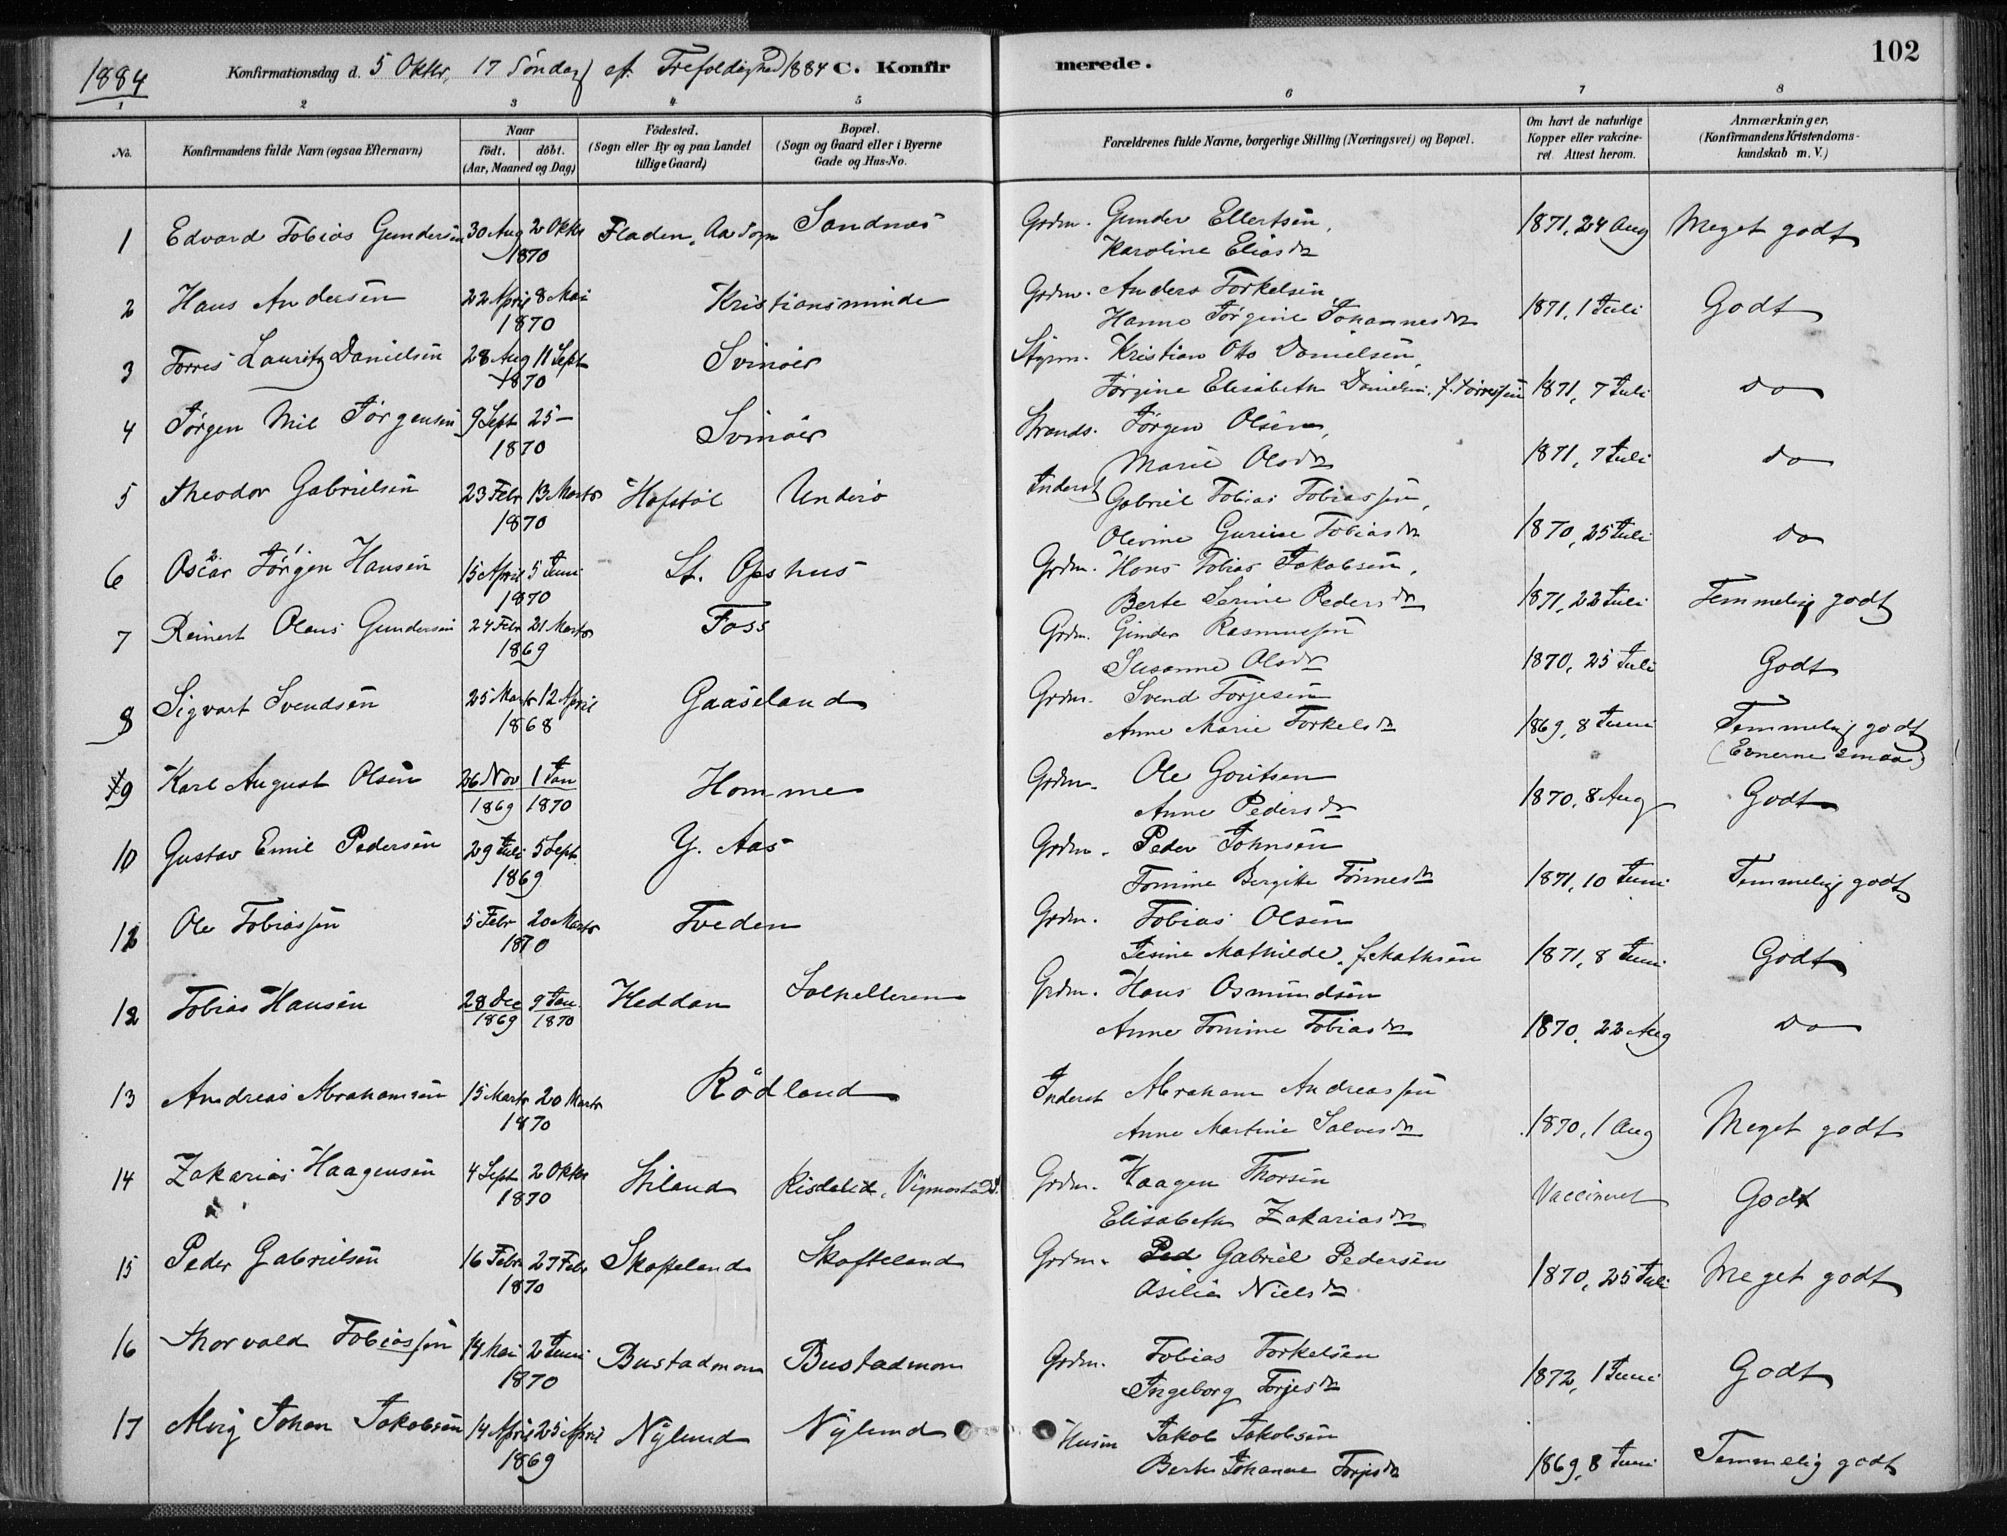 102
1884 Konfirmationsdag d. 5 Oktbr, 17 Söndag ef. Trefoldighed 1884 C. Konfirmerede.
1 2 3 4 5 6 7 8
No. Konfirmandens fulde Navn (ogsaa Efternavn) Naar födt. döbt. (Aar, Maaned og Dag) Födested. (Sogn eller By og paa Landet tillige Gaard) Bopæl. (Sogn og Gaard eller i Byerne Gade og Hus-No. Forældrenes fulde Navne, borgerlige Stilling (Næringsvei) og Bopæl. Om havt de naturlige Kopper eller vakcineret. Attest herom. Anmærkninger. (Konfirmandens Kristendomskundskab m. V.)
1 Edvard Tobias Gundersen 30 Aug 2 Oktbr Fladen, Aa Sogn Sandnes Grdm. Gunder Ellertsen, 1871, 24 Aug Meget godt
1870 Karoline Eliasdr
2 Hans Andersen 22 April 8 Mai Kristiansminde Grdm. Anders Torkelsen, 1871, 1 Juli Godt
1870 Hanne Jørgine Johannesdr
3 Torres Lauritz Danielsen 28 Aug 11 Sept Svinöer Styrm. Kristian Otto Danielsen,
1870 Jørgine Elisabeth Danielsen f. Torressen 1871, 7 Juli do
4 Jørgen Mil Jørgensen 9 Sept 25 – Svinöer Strands. Jørgen Olsen,
1870 Marie Olsdr 1871, 7 Juli do
5 Theodor Gabrielsen 23 Febr 13 Marts Hafstöl Underö Inderst Gabriel Tobias Tobiassen,
1870 Olevine Gurine Tobiasdr 1870, 25 Juli do
6 Oscar Jörgen Hansen 15 April 5 Juni St. Opshus Grdm. Hans Tobias Jakobsen,
1870 Berte Serine Pedersdr 1871, 22 Juli Temmelig godt
7 Reinert Olaus Gundersen 24 Febr 21 Marts Foss Grdm. Gunder Rasmussen
1869 Susanne Olsdr 1870, 25 Juli Godt
8 Sigvart Svendsen 25 Marts 12 April Gaaseland Grdm. Svend Torjesen
1868 Anne Marie Torkelsdr 1869, 8 Juni Temmelig godt
(Evnerne smaa)
9 Karl August Olsen 26 Nov 1 Jan Homme Grdm. Ole Goritsen
1869 1870 Anne Pedersdr 1870, 8 Aug Godt
10 Gustav Emil Pedersen 29 Juli 5 Sept. Y. Aas Grdm. Peder Johnsen
1869 Tomine Bergitte Tönnesdr 1871, 10 Juni Temmelig godt
12 Ole Tobiassen 5 Febr 20 Marts Tveden Grdm. Tobias Olsen
1870 Jesine Mathilde f. Mathsen 1871, 8 Juni Godt
12 Tobias Hansen 28 Dec 9 Jan Heddan Solhelleren Grdm. Hans Osmundsen
1869 1870 Anne Tomine Tobiasdr 1870, 22 Aug do
13 Andreas Abrahamsen 15 Marts 20 Marts Rödland Inderst Abraham Andreassen
1870 Anne Martine Salvesdr 1870, 1 Aug Meget godt
14 Zakarias Haagensen 4 Sept 2 Oktbr Stiland Risdalid, Vigmostad Grdm. Haagen Thorsen Vaccineret Godt
1870 Elisabeth Zakariasdr
15 Peder Gabrielsen 16 Febr 27 Febr Skofteland Skofteland Grdm. Ped Gabriel Pedersen
1870 Asilie Nielsdr 1870, 25 Juli Meget godt
16 Thorvald Tobiassen 14 Mai 2 Juni Bustadmoen Bustadmoen Grdm. Tobias Torkelsen
1870 Ingeborg Torjesdr 1872, 1 Juni Godt
17 Alvig Johan Jakobsen 14 April 25 April Nylund Nylund Husm Jakob Jakobsen
1869 Berte Johanne Torjesdr 1869, 8 Juni Temmelig godt